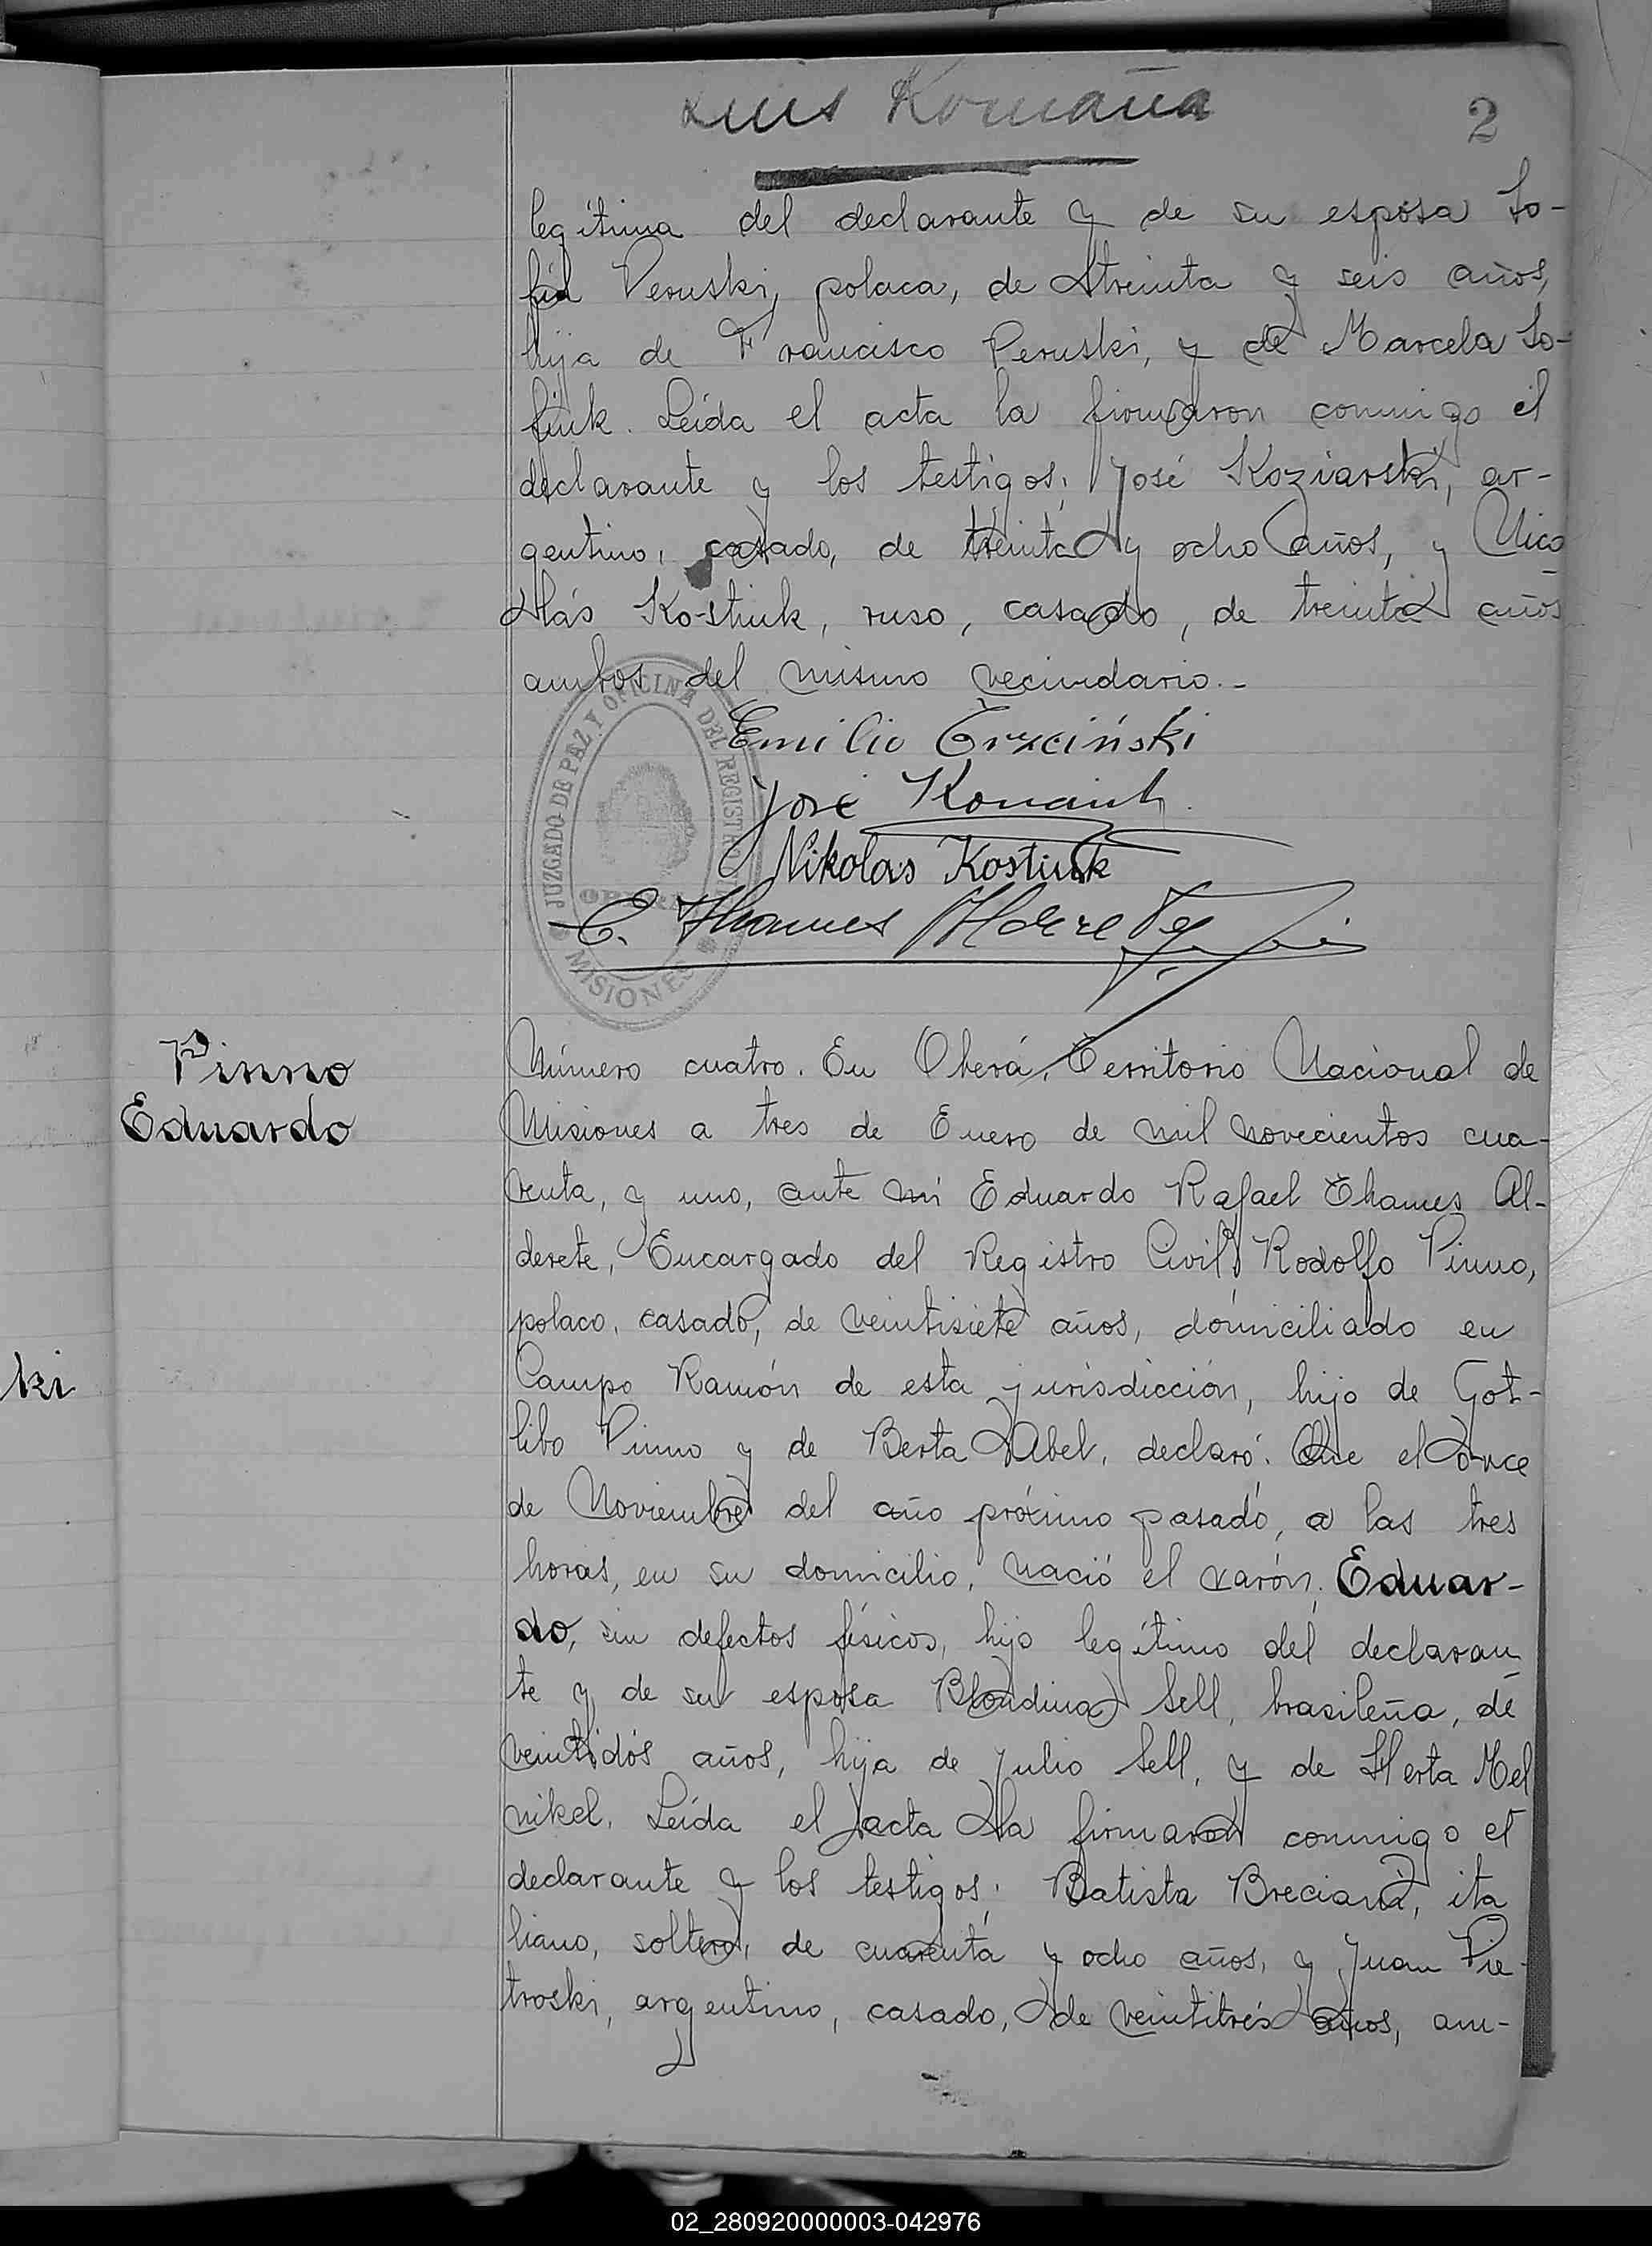 Luis Romaña
2
legítima del declarante y de su esposa So-
fía Peruski, polaca, de treinta y seis años,
hija de Francisco Peruski, y de Marcela So-
fiuk. Leída el acta la firmaron conmigo el
declarante y los testigos: José Koziarski, ar-
gentino, casado, de treinta y ocho años, y Nico
lás Kostiuk, ruso, casado, de treinta años
ambos del mismo vecindario.-
Emilio Trzciński
José
Nikolas Kostiuk
E. Thames Alderete
JUZGADO DE PAZ Y OFICINA DEL REGISTRO
OBERÁ
MISIONES
ki
Pinno
Eduardo
Número cuatro. En Oberá, Territorio Nacional de
Misiones a tres de Enero de mil novecientos cua-
renta, y uno, ante mí Eduardo Rafael Thames Al-
derete, Encargado del Registro Civil, Rodolfo Pinno,
polaco, casado, de veintisiete años, domiciliado en
Campo Ramón de esta jurisdicción, hijo de Got-
libo Pinno y de Berta Abel, declaró: Que el once
de Noviembre del año próximo pasado, a las tres
horas, en su domicilio, nació el varón, Eduar-
do, sin defectos físicos, hijo legítimo del declaran
te y de su esposa Blondina Sell, brasileña, de
veintidós años, hija de Julio Sell, y de Herta Mel
nikel. Leída el acta la firmaron conmigo el
declarante y los testigos: Batista Breciani, ita
liano, soltero, de cuarenta y ocho años, y Juan Pie-
troski, argentino, casado, de veintitrés años, am-
02_280920000003-042976